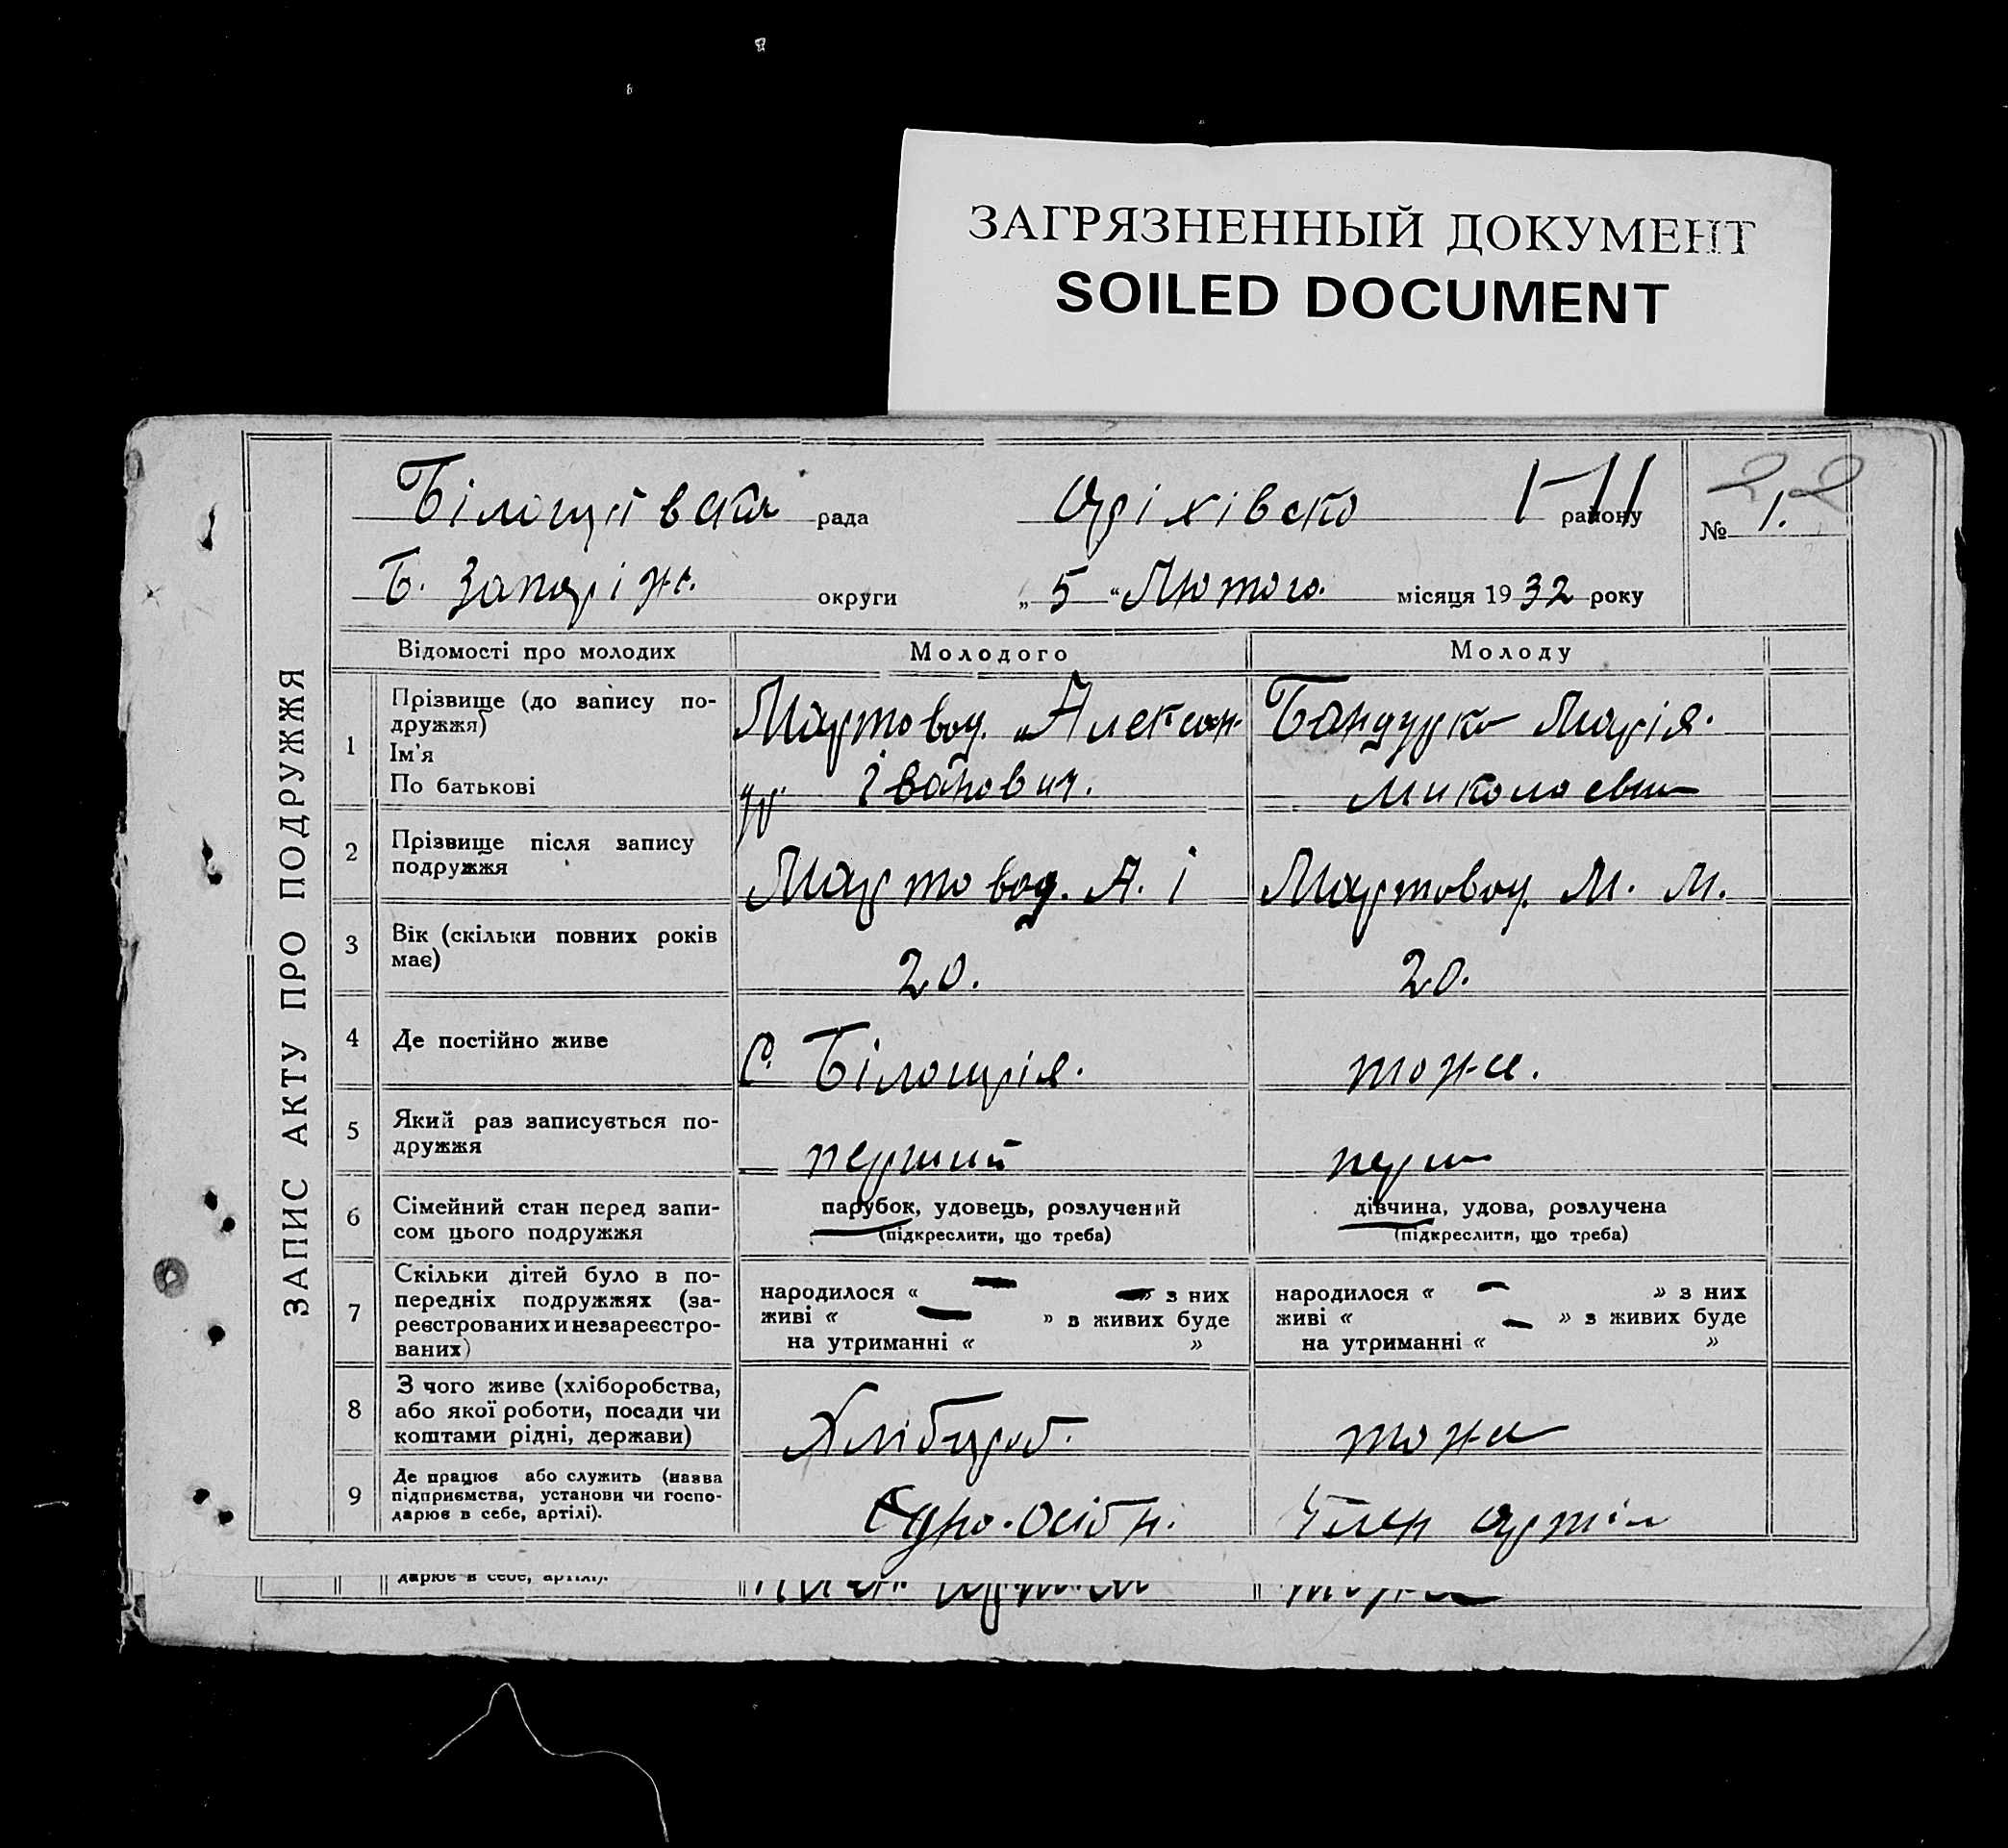 ЗАГРЯЗНЕННЫЙ ДОКУМЕНТ
SOILED DOCUMENT
ЗАПИС АКТУ ПРО ПОДРУЖЖЯ
рада Оріхівско району № 1. 22
Б. Запоріж. округи „ 5 “ Лютого. місяця 1932 року
Відомості про молодих Молодого Молоду
1 Прізвище (до запису по-
дружжя)
Ім'я
По батькові
Мартовод. Алексан-
др Іванович.
Бандурко Марія.
Миколаевн
2 Прізвище після запису
подружжя
Мартовод. А. І
Мартовод. М. М.
3 Вік (скільки повних років
має)
20.
20.
4 Де постійно живе
С.
тоже.
5 Який раз записується по-
дружжя
перший
перш
6 Сімейний стан перед запи-
сом цього подружжя
парубок, удовець, розлучений
(підкреслити, що треба)
дівчина, удова, розлучена
(підкреслити, що треба)
7 Скільки дітей було в по-
передніх подружжях (за-
реєстрованих и незареєстро-
ваних)
народилося « — — » з них
живі « — » з живих буде
на утриманні « »
народилося « — » з них
живі « — » з живих буде
на утриманні « »
8 З чого живе (хліборобства,
або якої роботи, посади чи
коштами рідні, держави)
Хлібороб.
тоже
9 Де працює або служить (назва
підприємства, установи чи госпо-
дарює в себе, артілі).
Одно-осібн.
Член артіл
дарює в себе, артілі).